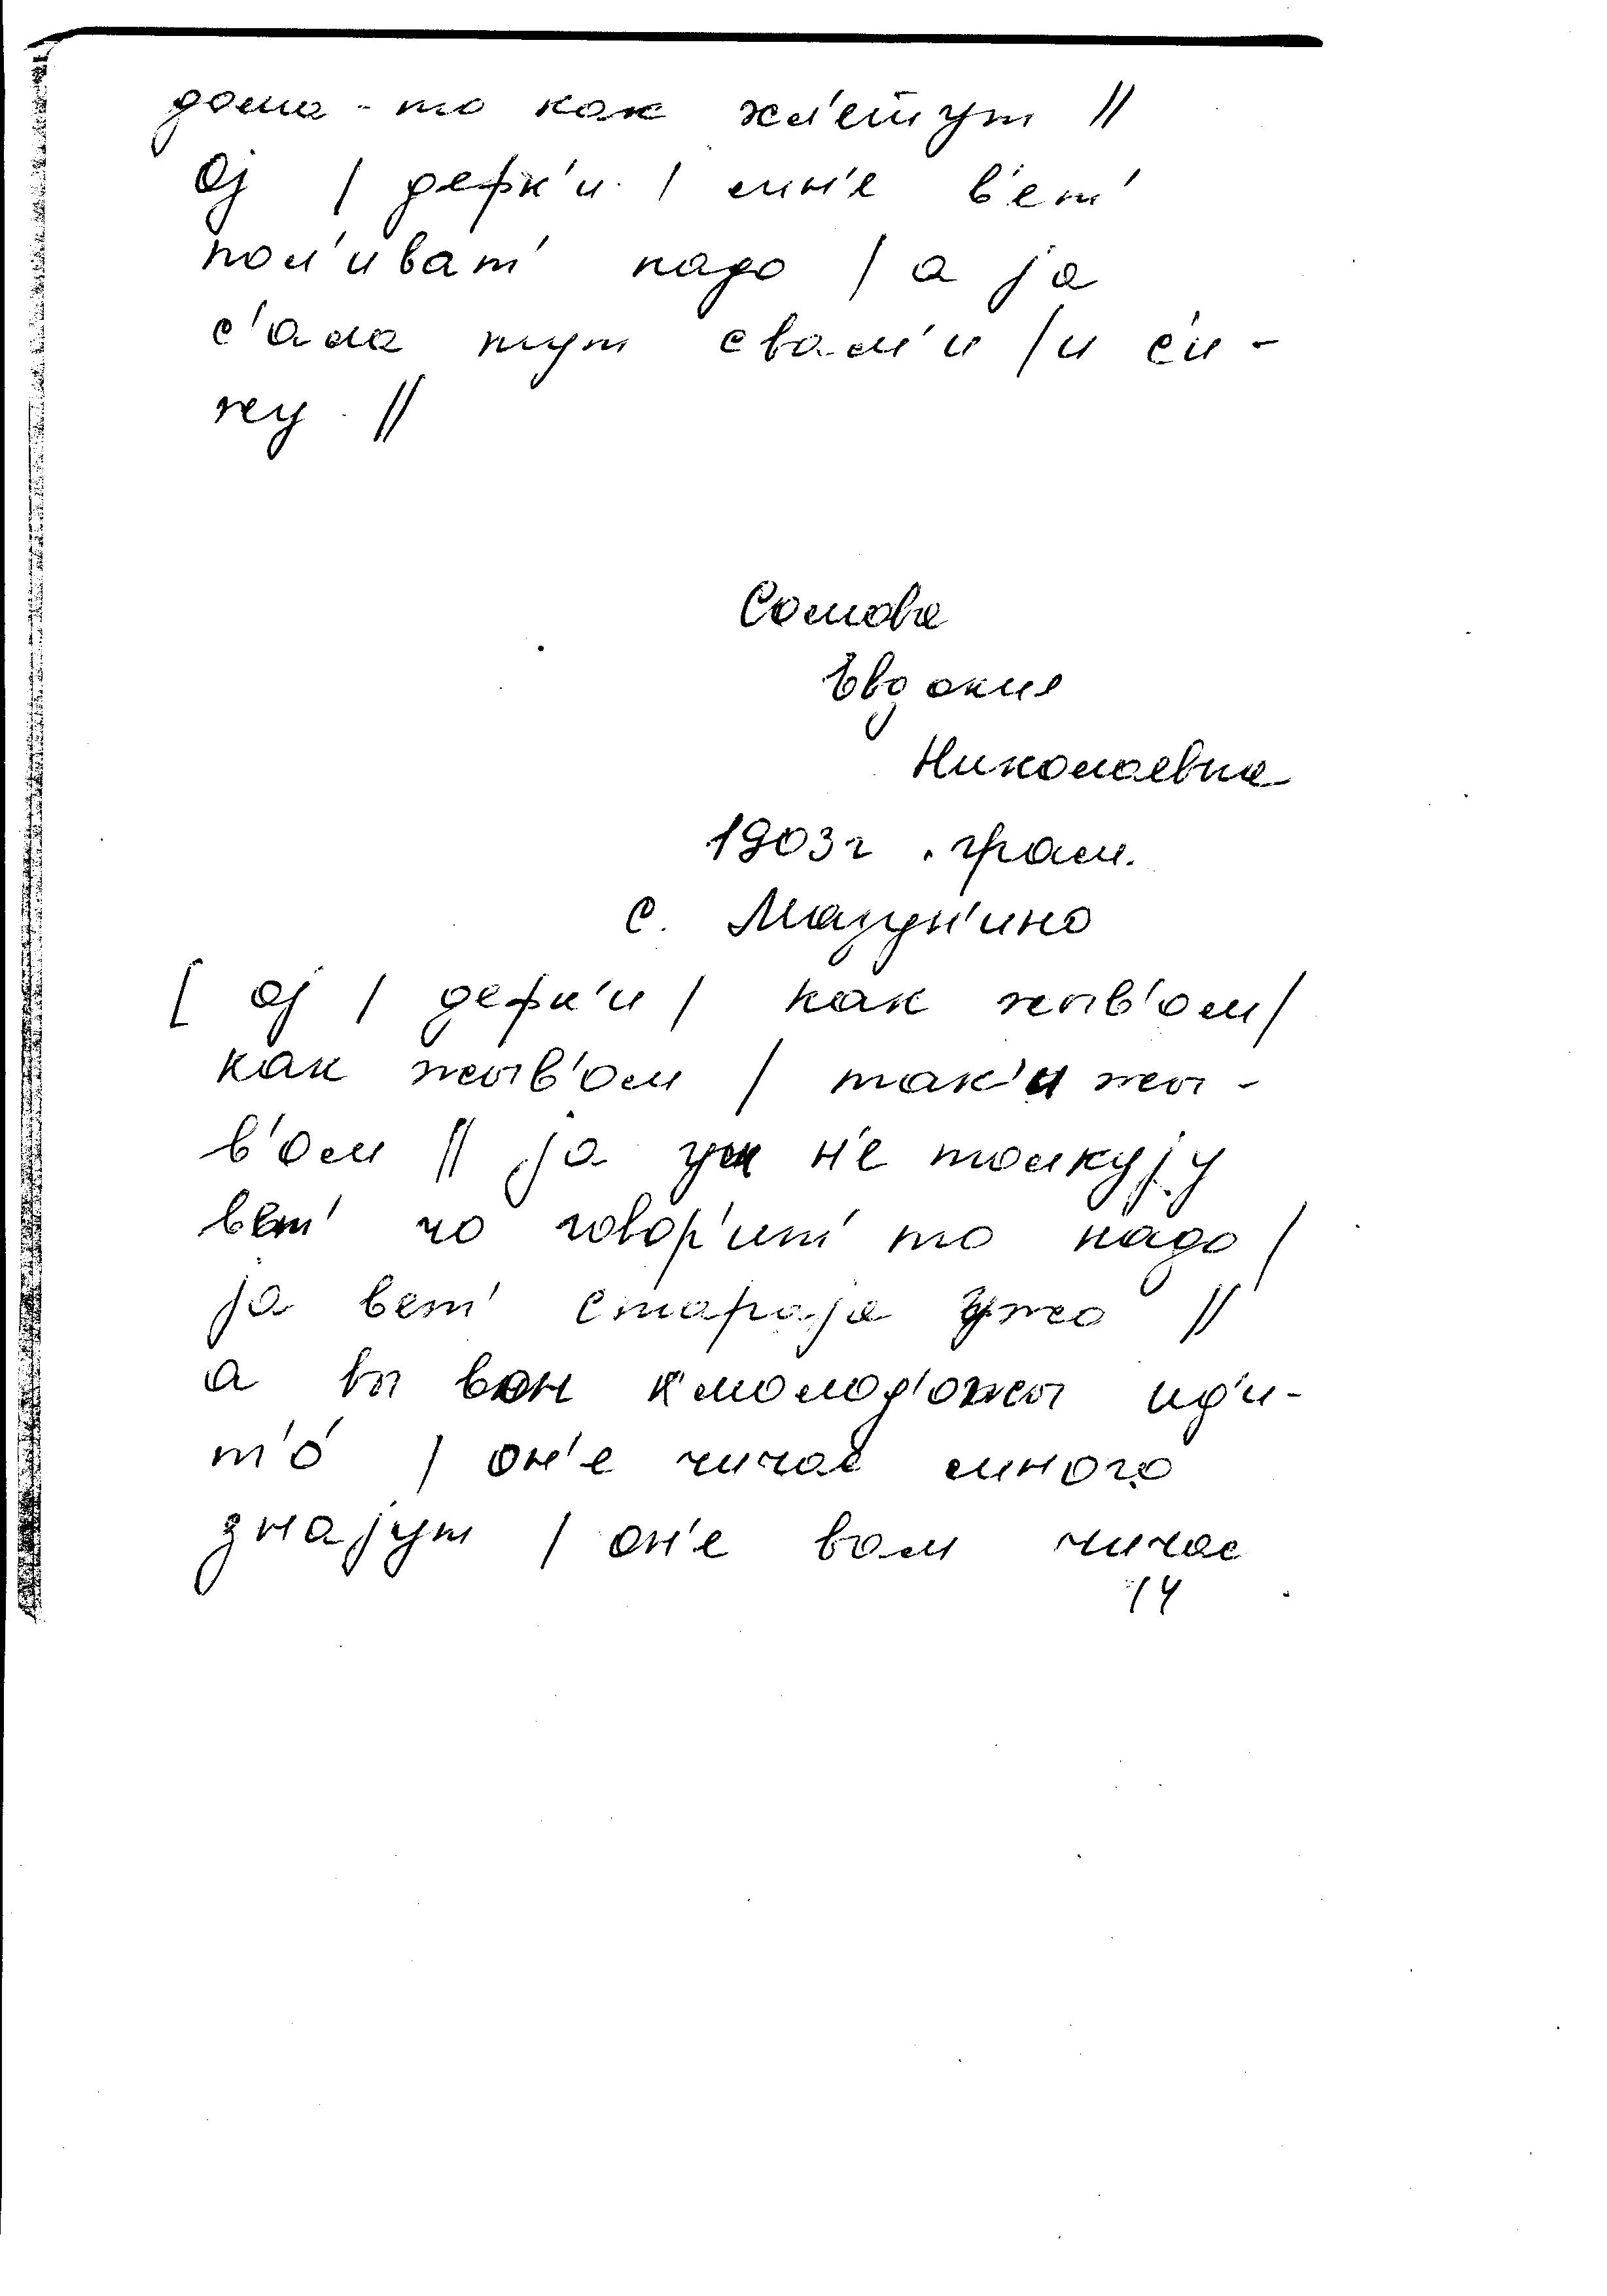 дома-то как хл'ешшут //
Оj / дефк'и / мн'е в'ет'
пол'иват' надо / а jа
с'ала тут свал'и / и с'и-
жу //
Сомова
Евдокия
Николаевна
1903г. грам.
с. Мазун'ино
[ оj / дефк'и / как жыв'ом /
как жыв'ом / так'и жы-
в'ом // jа уш н'е толкуjу
вет' чо говор'ит' то надо /
jа вет' стараjа ужо //
а вы вон к молод'ожы ид'и-
т'о / он'е чичас много
знаjут / он'е вам чичас
14